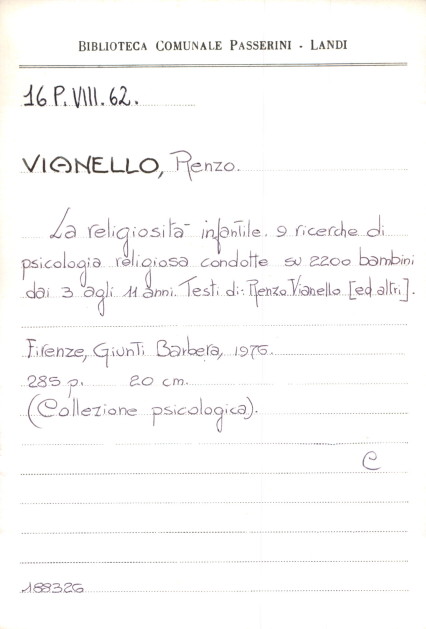 BIBLIOTECA COMUNALE PASSERINI - LANDI
16 P. VIII. 62.
VIANELLO, Renzo.
La religiosità infantile. 9 ricerche di
psicologia religiosa condotte su 2200 bambini
dai 3 agli 11 anni. Testi di: Renzo Vianello [ed altri].
Firenze, Giunti Barbera, 1976.
285 p. 20 cm.
(Collezione psicologica).
C
188326